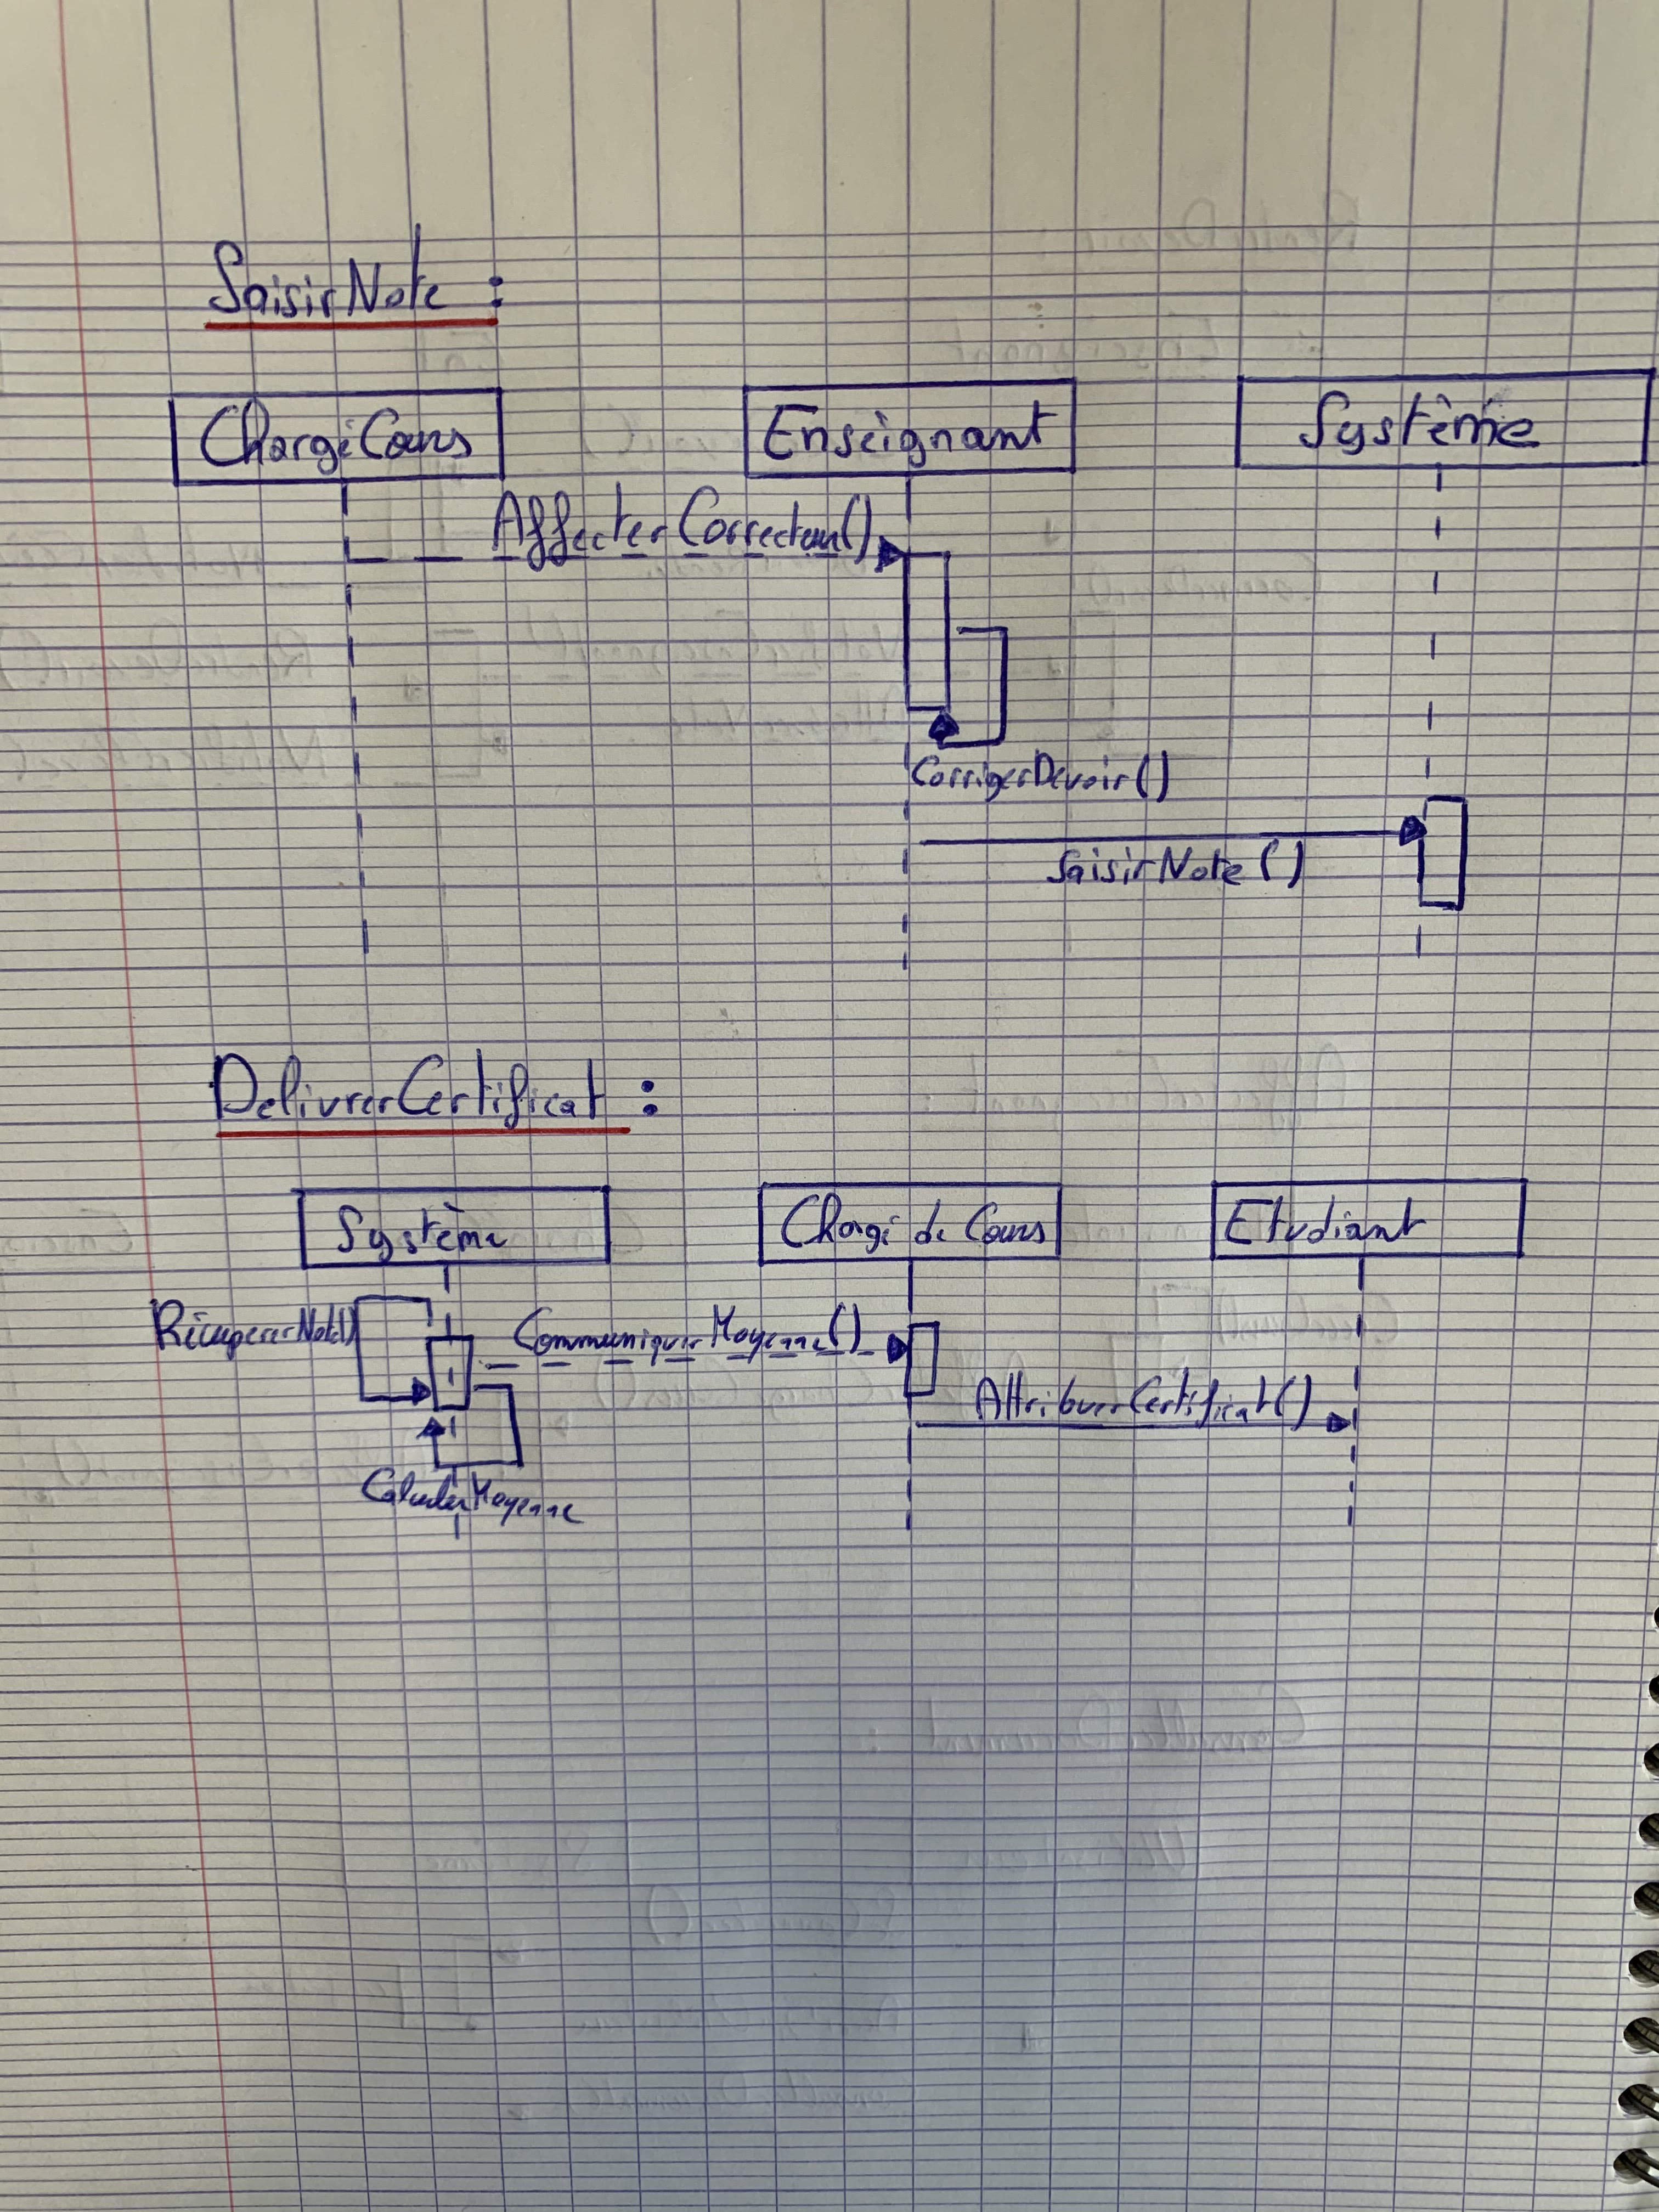 SaisirNote :
ChargéCours
Enseignant
Système
AffecterCorrecteur()
CorrigerDevoir()
SaisirNote()
DelivrerCertificat :
Système
Chargé de Cours
Etudiant
RécupererNote()
CommuniquerMoyenne()
AttribuerCertificat()
CalculerMoyenne